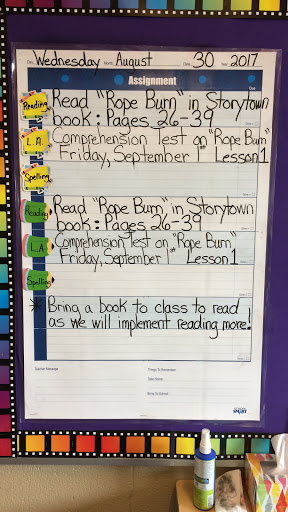 Wednesday August 30 2017
Assignment
Reading Read "Rope Burn" in Storytown
book: Pages 26-39
L.A. Comprehension Test on "Rope Burn"
Friday, September 1st Lesson 1
Spelling
Reading Read "Rope Burn" in Storytown
book: Pages 26-39
L.A Comprehension Test on "Rope Burn"
Friday, September 1st Lesson 1
Spelling
* Bring a book to class to read
as we will implement reading more!
Teacher Message
Things To Remember
Take Home
Bring To School